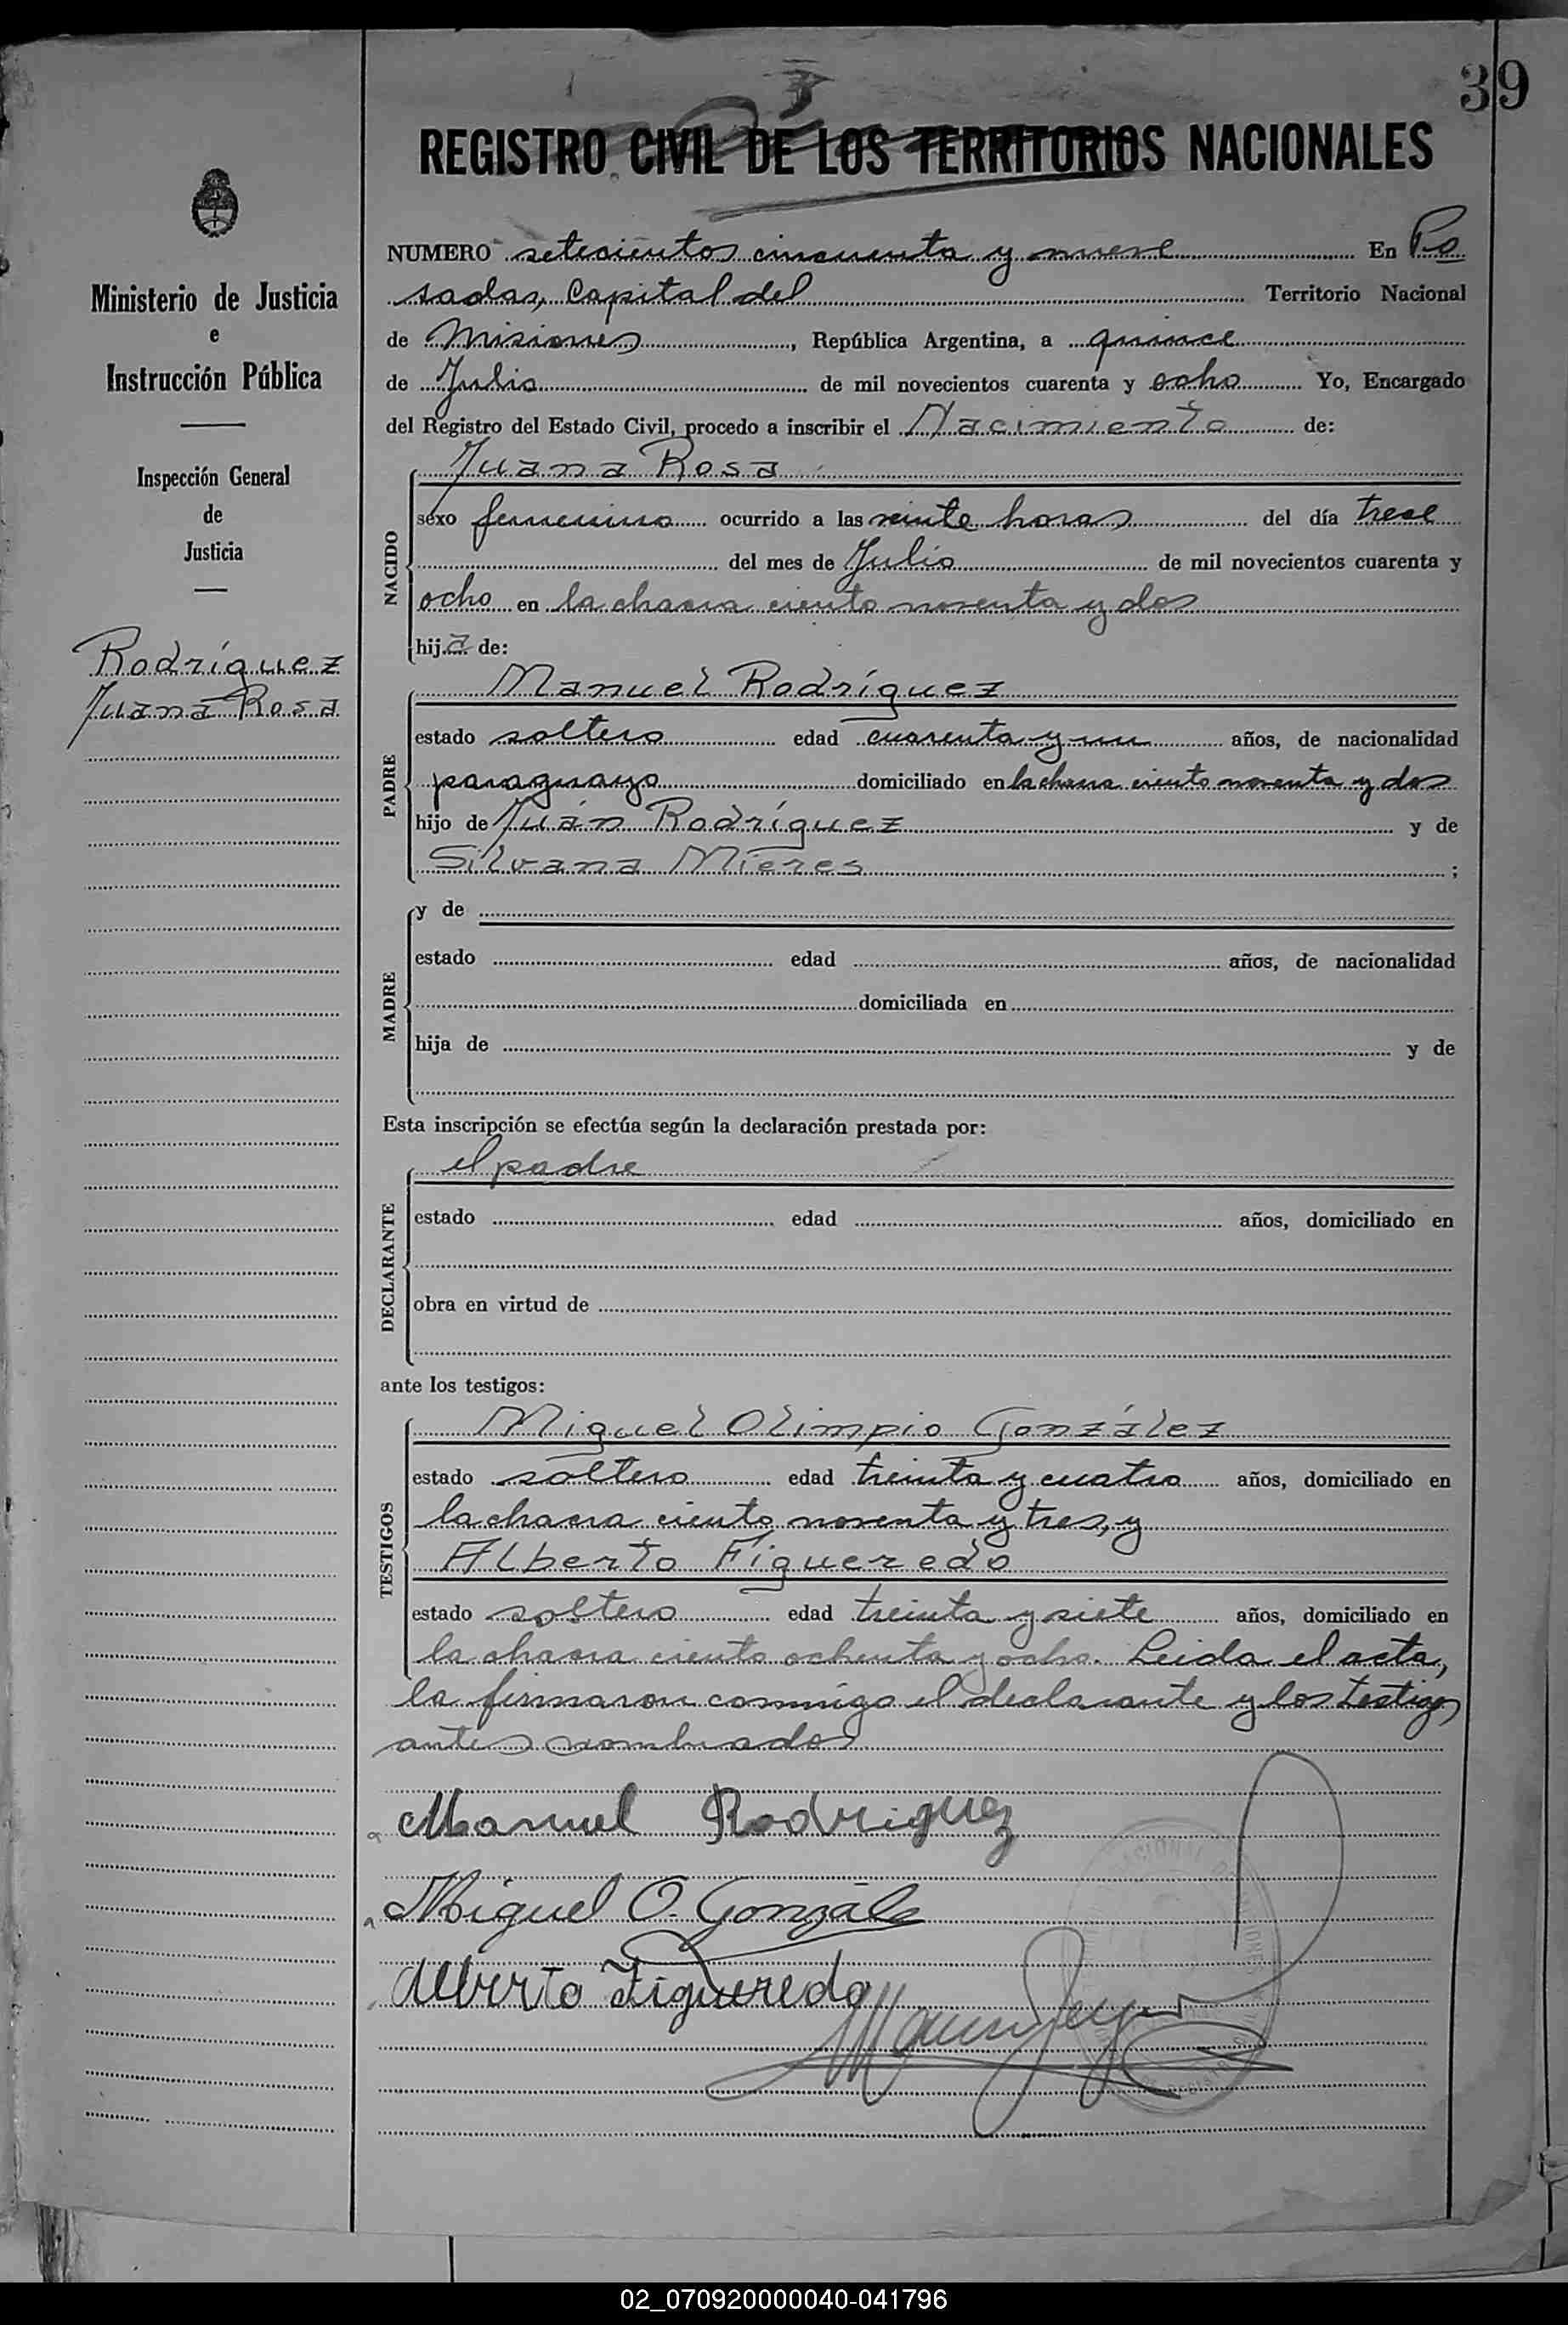 39
REGISTRO CIVIL DE LOS TERRITORIOS NACIONALES
Ministerio de Justicia
e
Instrucción Pública
Inspección General
de
Justicia
Rodríguez
Juana Rosa
NUMERO setecientos cincuenta y nueve En Po
sadas, Capital del Territorio Nacional
de Misiones, República Argentina, a quince
de Julio de mil novecientos cuarenta y ocho Yo, Encargado
del Registro del Estado Civil, procedo a inscribir el Nacimiento de:
NACIDO
Juana Rosa
sexo femenino ocurrido a las veinte horas del día trece
del mes de Julio de mil novecientos cuarenta y
ocho en la chacra ciento noventa y dos
hija de:
PADRE
Manuel Rodríguez
estado soltero edad cuarenta y un años, de nacionalidad
paraguayo domiciliado en la chacra ciento noventa y dos
hijo de Juán Rodríguez y de
Silvana Mieres ;
MADRE
y de
estado edad años, de nacionalidad
domiciliada en
hija de y de
Esta inscripción se efectúa según la declaración prestada por:
DECLARANTE
el padre
estado edad años, domiciliado en
obra en virtud de
ante los testigos:
TESTIGOS
Miguel Olimpio González
estado soltero edad treinta y cuatro años, domiciliado en
la chacra ciento noventa y tres, y
Alberto Figueredo
estado soltero edad treinta y siete años, domiciliado en
la chacra ciento ochenta y ocho. Leida el acta,
la firmaron conmigo el declarante y los testigos
antes nombrados
Manuel Rodriguez
Miguel O. Gonzále
Alberto Figueredo
02_070920000040-041796